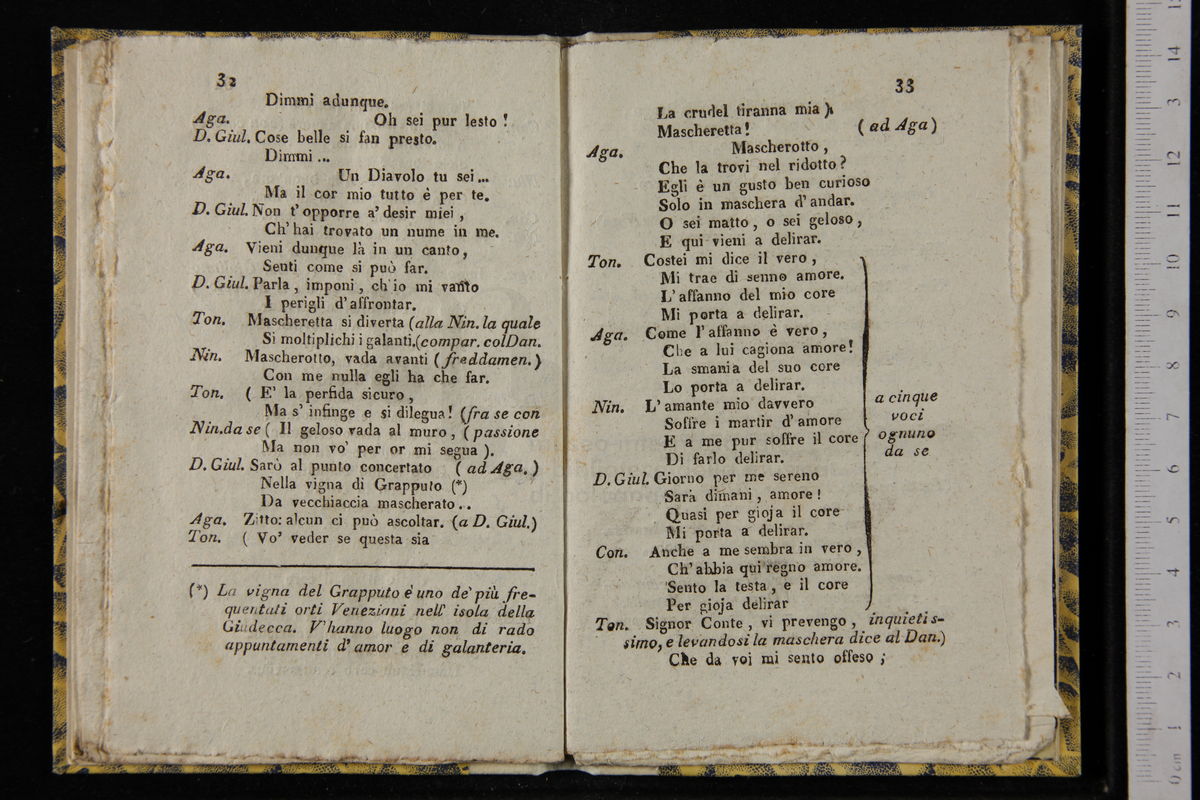 32
Dimmi adunque.
Aga. Oh sei pur lesto !
D. Giul. Cose belle si fan presto.
Dimmi ...
Aga. Un Diavolo tu sei ...
Ma il cor mio tutto è per te.
D. Giul. Non t' opporre a' desir miei ,
Ch' hai trovato un nume in me.
Aga. Vieni dunque là in un canto,
Senti come si può far.
D. Giul. Parla , imponi , ch' io mi vanto
I perigli d' affrontar.
Ton. Mascheretta si diverta (alla Nin. la quale
Si moltiplichi i galanti.(compar. col Dan.
Nin. Mascherotto, vada avanti ( freddamen. )
Con me nulla egli ha che far.
Ton. ( E' la perfida sicuro ,
Ma s' infinge e si dilegua ! (fra se con
Nin.da se ( Il geloso vada al muro , ( passione
Ma non vo' per or mi segua ).
D. Giul. Sarò al punto concertato ( ad Aga. )
Nella vigna di Grapputo (*)
Da vecchiaccia mascherato ..
Aga. Zitto: alcun ci può ascoltar. (a D. Giul.)
Ton. ( Vo' veder se questa sia
(*) La vigna del Grapputo è uno de' più fre-
quentati orti Veneziani nell' isola della
Giudecca. V' hanno luogo non di rado
appuntamenti d' amor e di galanteria.
33
La crudel tiranna mia ).
Mascheretta ! ( ad Aga )
Aga. Mascherotto ,
Che la trovi nel ridotto ?
Egli è un gusto ben curioso
Solo in maschera d' andar.
O sei matto , o sei geloso ,
E qui vieni a delirar.
Ton. Costei mi dice il vero ,
Mi trae di senno amore.
L' affanno del mio core
Mi porta a delirar.
Aga. Come l' affanno è vero ,
Che a lui cagiona amore !
La smania del suo core
Lo porta a delirar.
Nin. L' amante mio davvero
Soffre i martir d' amore
E a me pur soffre il core
Di farlo delirar.
a cinque
voci
ognuno
da se
D. Giul. Giorno per me sereno
Sarà dimani , amore !
Quasi per gioja il core
Mi porta a delirar.
Con. Anche a me sembra in vero ,
Ch' abbia qui regno amore.
Sento la testa , e il core
Per gioja delirar
Ton. Signor Conte , vi prevengo , inquietis-
simo, e levandosi la maschera dice al Dan.)
Che da voi mi sento offeso ;
0 cm 1 2 3 4 5 6 7 8 9 10 11 12 13 14